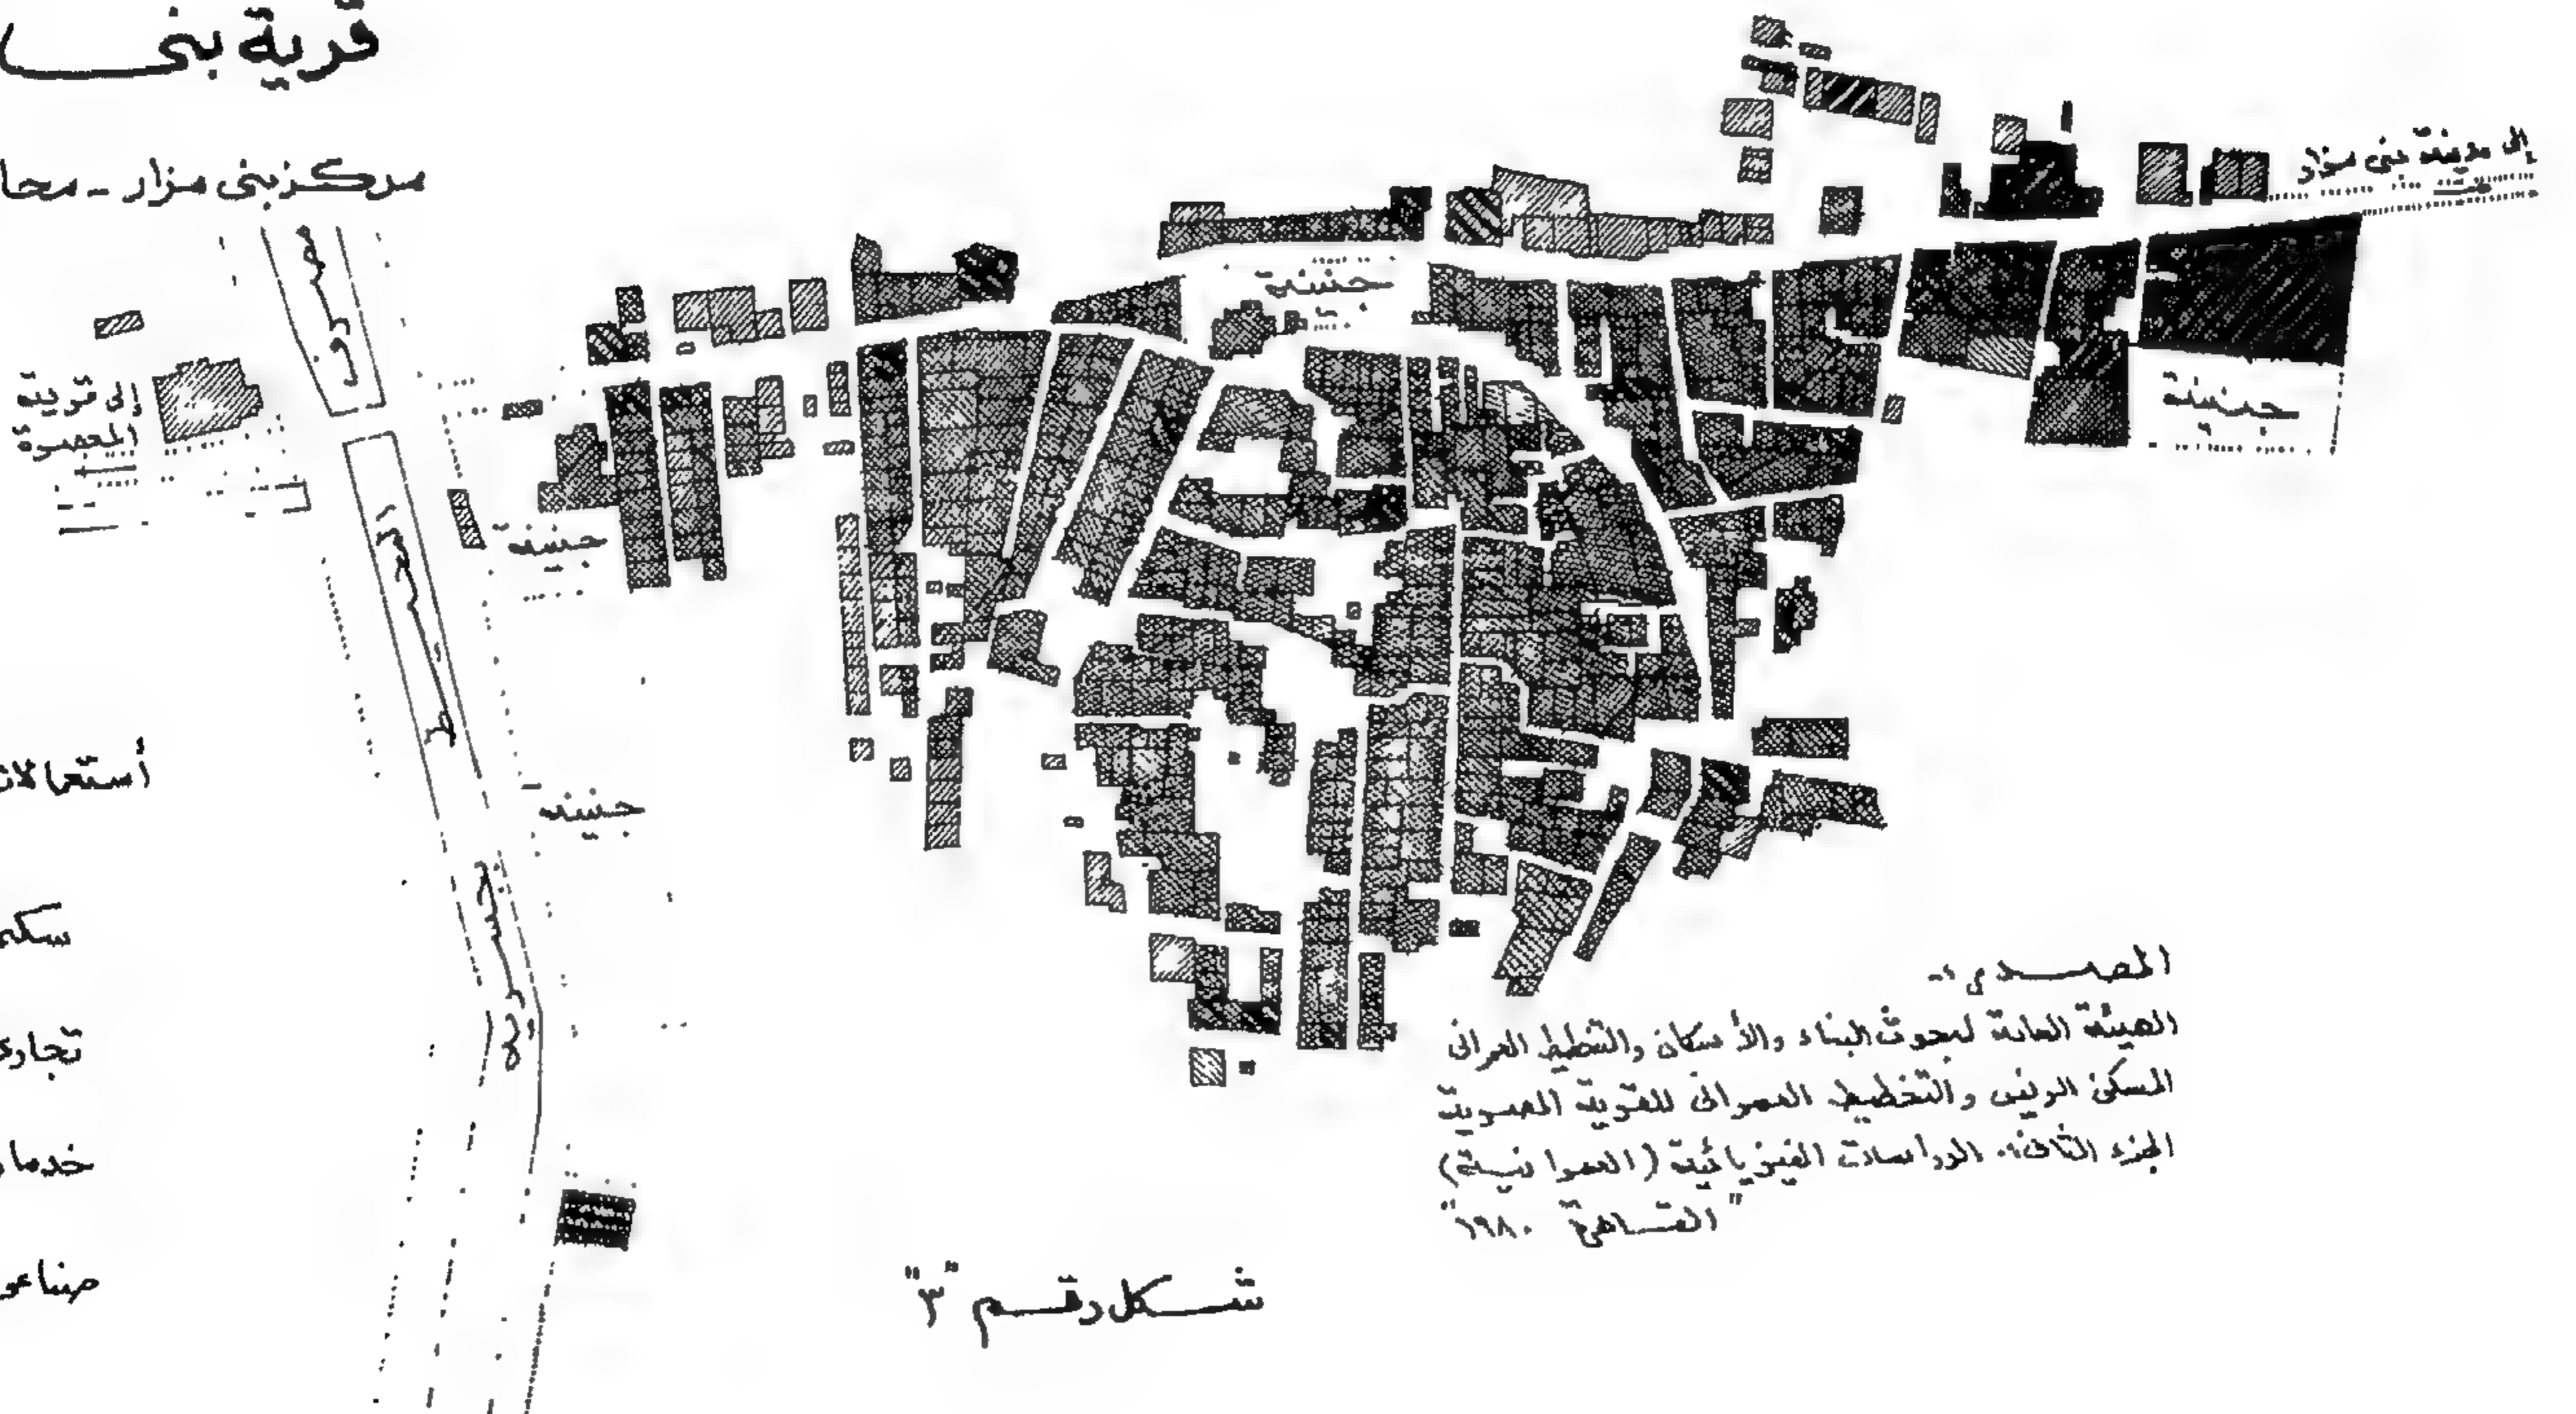 قرية بنى
مركز بنى مزار - محا
إلى مدينة بنى مزار
جنينة
جنينة
إلى قرية
المعصرة
مصرف
المحيط
جنينة
جنينة
جسر
أستعمالات
سكنى
تجارى
خدمات
صناعى
المصدر :-
الهيئة العامة لبحوث البناء والأسكان والتخطيط العمرانى
المسكن الريفى والتخطيط العمرانى للقرية المصرية
الجزء الثانى: الدراسات الفيزيائية (العمرانية)
"القاهرة ١٩٨٠"
شكل رقم "٣"